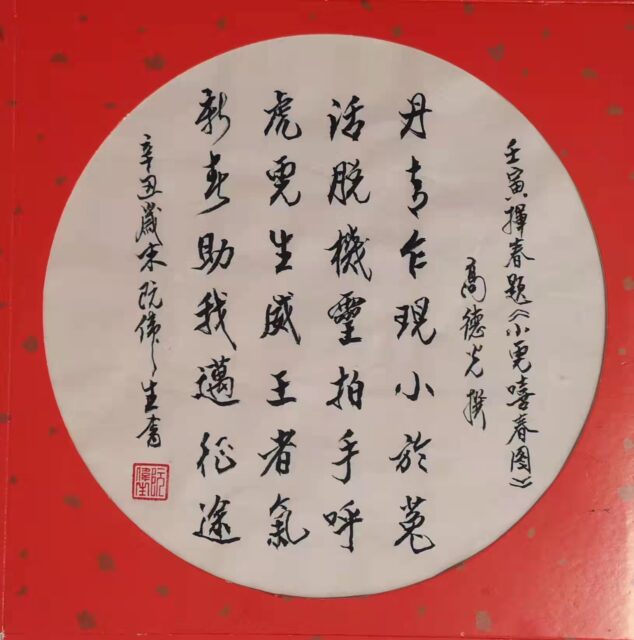 壬寅揮春题《小虎嘻春图》
高德光撰
丹青乍現小於菟
活脱機靈拍手呼
虎虎生威王者氣
新春助我邁征途
辛丑歲末阮偉生書
阮偉生